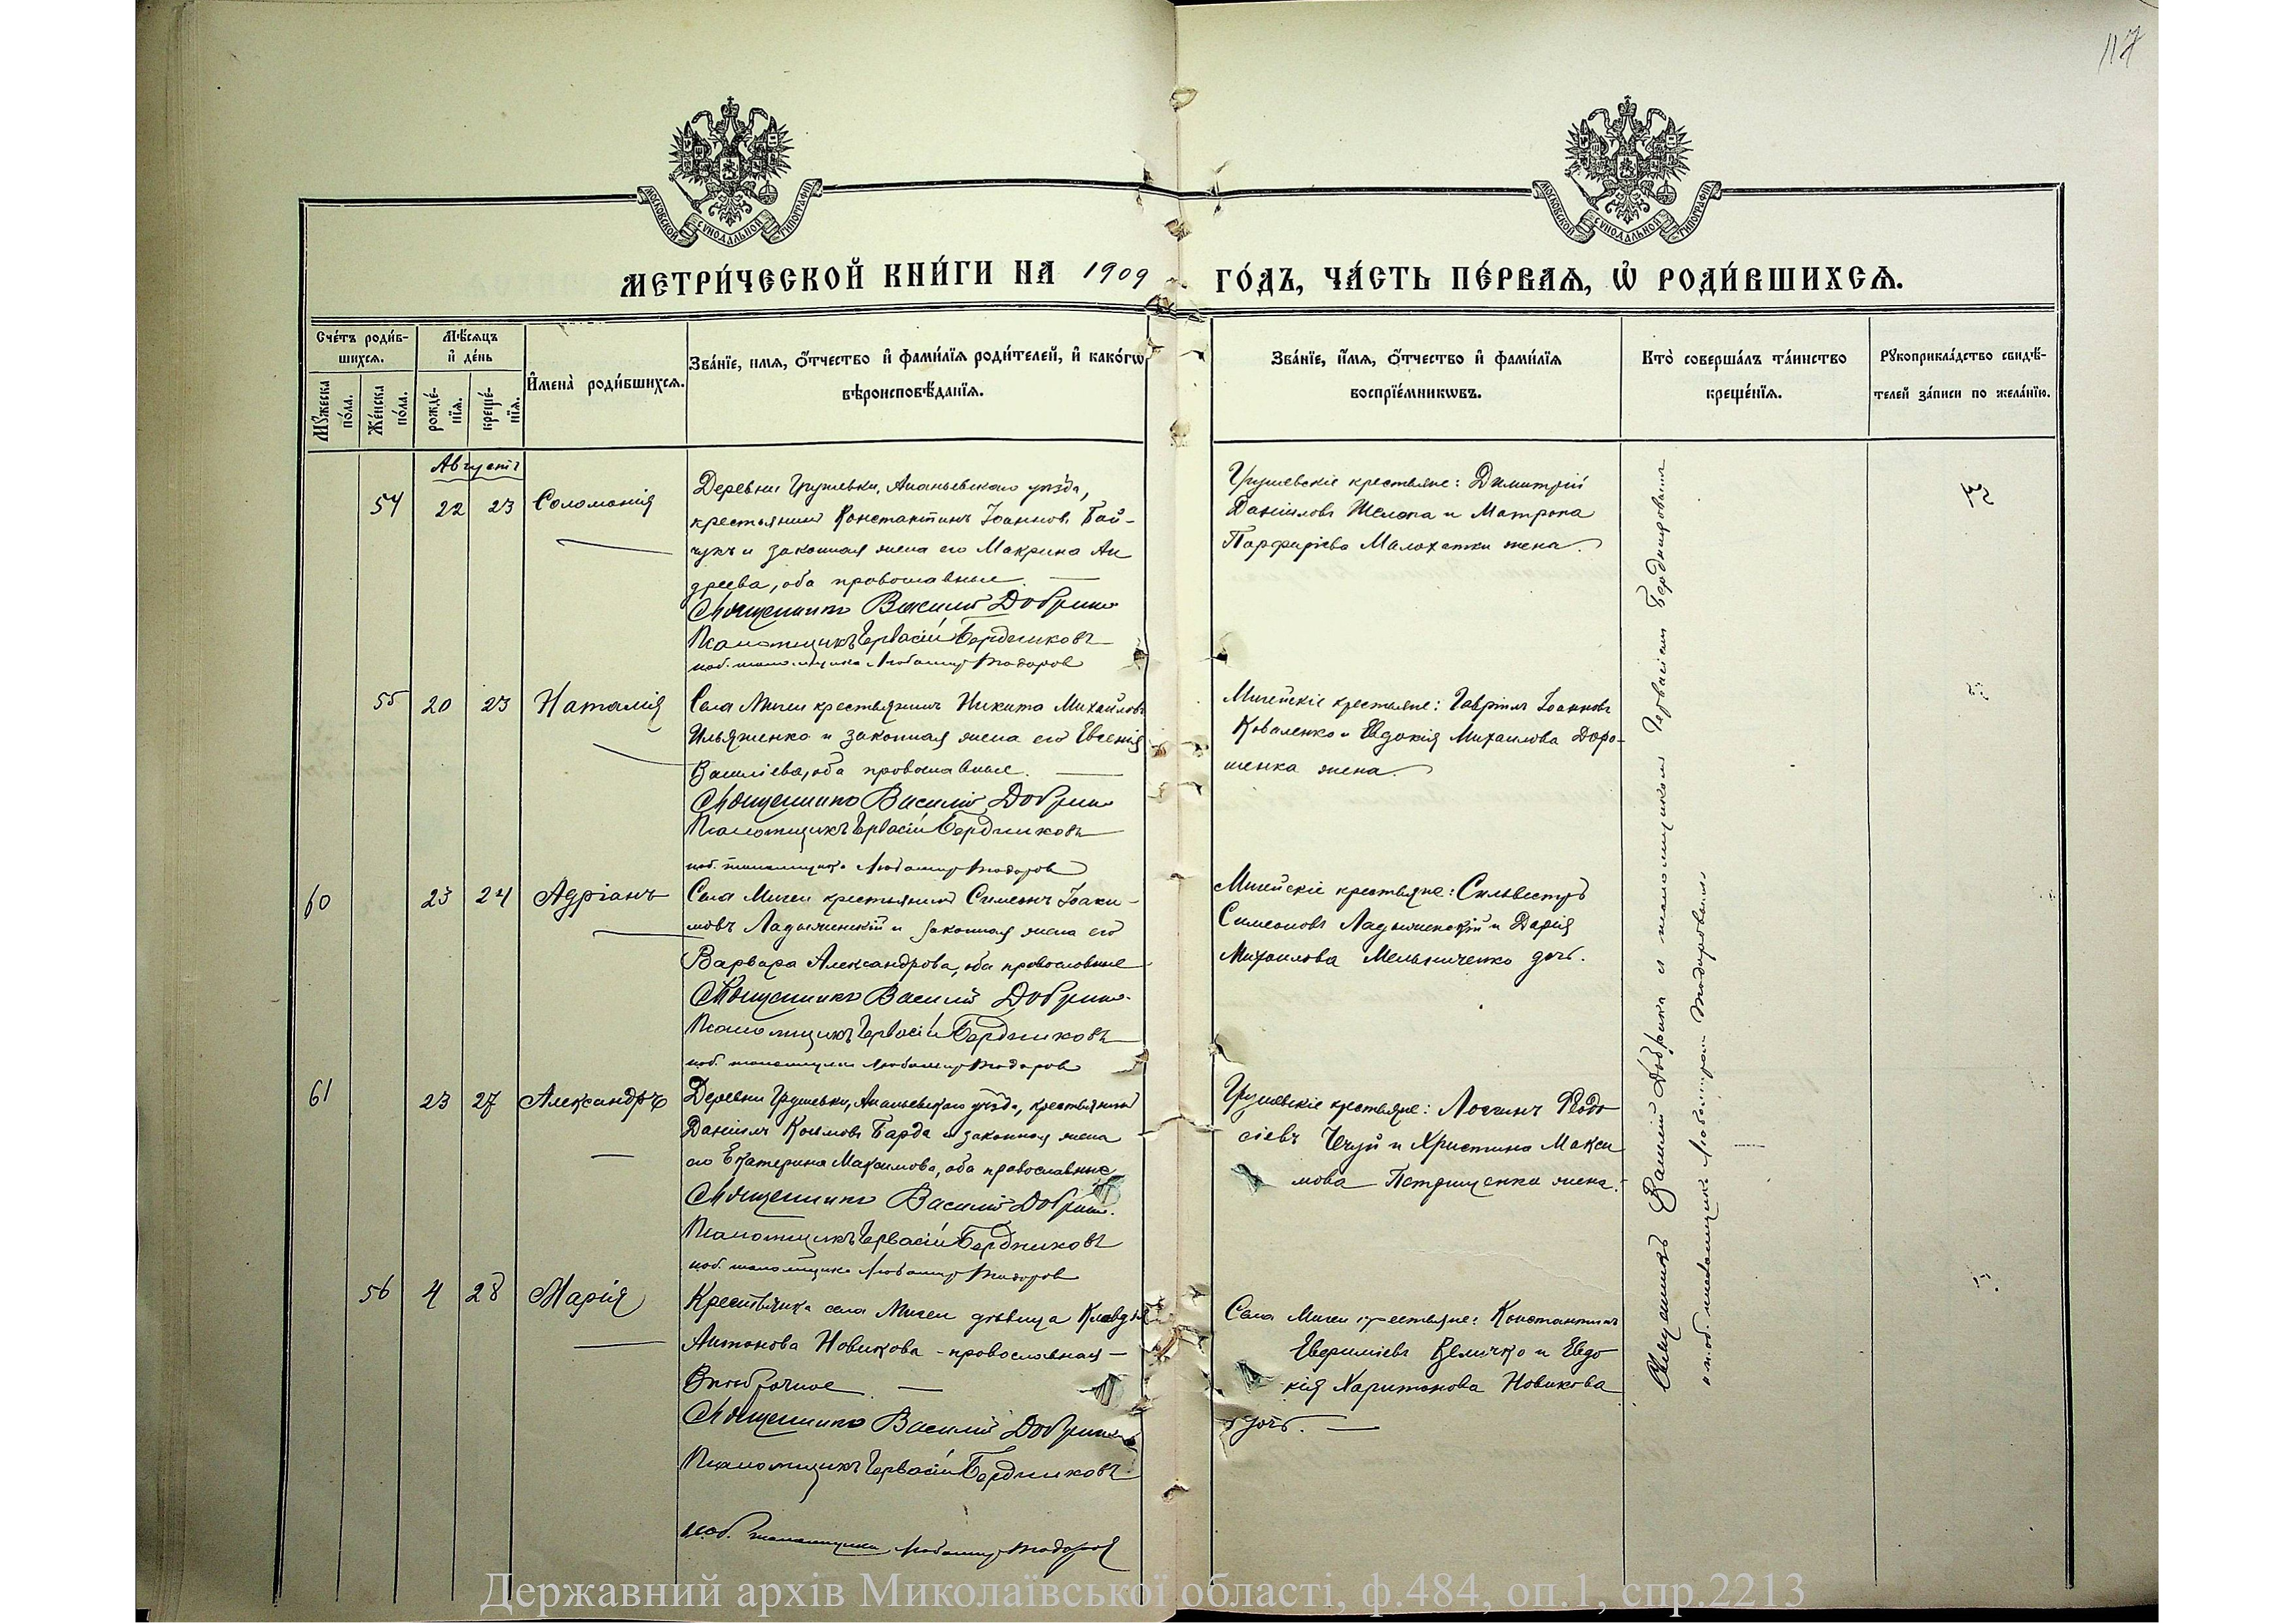 117
МОСКОВСКОЙ СΥНОДАЛЬНОЙ ТИПОГРАФІИ
МОСКОВСКОЙ СΥНОДАЛЬНОЙ ТИПОГРАФІИ
МЕТРИ́ЧЕСКОЙ КНИ́ГИ НА 1909 ГО́ДЪ, ЧА́СТЬ ПЕ́РВАѦ, Ѡ РОДИ́ВШИХСѦ.
Сче́тъ роди́в-
шихсѧ.
Мꙋжеска по́ла.
Же́нска по́ла.
Мѣ́сѧцъ
и де́нь
рожде́-
нїѧ.
креще́-
нїѧ.
Имена̀ роди́вшихсѧ.
Зва́нїе, имѧ, о́тчество и фами́лїѧ роди́телей, и како́гѡ
вѣроисповѣ́данїѧ.
Зва́нїе, и́мѧ, о́тчество и фами́лїѧ
воспрїе́мникѡвъ.
Кто̀ соверша́лъ та́инство
креще́нїѧ.
Рꙋкоприкла́дство свидѣ́-
телей за́писи по жела́нїю.
Августъ
54 22 23 Соломонія
Деревни Грушевки, Ананьевскаго уѣзда,
крестьянинъ Константинъ Іоанновъ Бай-
чукъ и законная жена его Макрина Ан
дреева, оба православные.
Священникъ Василій Добрин
Псаломщикъ Гервасій Бердниковъ
псаломщика Любомир Тодоров
Грушевскіе крестьяне: Димитрій
Даніиловъ Шелепа и Матрона
Парфиріева Малохатки жена.
55 20 23 Наталія
Села Мигеи крестьянинъ Никита Михайловъ
Ильяшенко и законная жена его Евгенія
Василіева, оба православные.
Священникъ Василій Добрин
Псаломщикъ Гервасій Бердниковъ
псаломщика Любомир Тодоров
Мигейскіе крестьяне: Гавріилъ Іоанновъ
Коваленко и Евдокія Михаилова Доро-
шенка жена.
60 23 24 Адріанъ
Села Мигеи крестьянинъ Симеонъ Іоаки-
мовъ Ладыженскій и законная жена его
Варвара Александрова, оба православные
Священникъ Василій Добрин
Псаломщикъ Гервасій Бердниковъ
псаломщика Любомир Тодоров
Мигейскіе крестьяне: Сильвестръ
Симеоновъ Ладыженскій и Дарія
Михаилова Мельниченко дочь.
61 23 27 Александръ
Деревни Грушевки, Ананьевскаго уѣзда, крестьянинъ
Даніилъ Козьмовъ Барда и законная жена
его Екатерина Максимова, оба православные
Священникъ Василій Добрин
Псаломщикъ Гервасій Бердниковъ
псаломщика Любомир Тодоров
Грушевскіе крестьяне: Логгинъ Ѳеодо
сіевъ Чечуй и Христина Макси
мова Петрищенка жена.
56 4 28 Марія
Крестьянка села Мигеи дѣвица Клавдія
Антонова Новикова - православная -
Внѣбрачное.
Священникъ Василій Добрин
Псаломщикъ Гервасій Бердниковъ
псаломщика Любомир Тодоров
Села Мигеи крестьяне: Константинъ
Евфиміевъ Величко и Евдо
кія Харитонова Новикова
дочь.
Священникъ Василій Добрин с псаломщикомъ Гервасіемъ Бердниковымъ
псаломщика Любомиромъ Тодоровымъ
Державний архів Миколаївської області, ф.484, оп.1, спр.2213